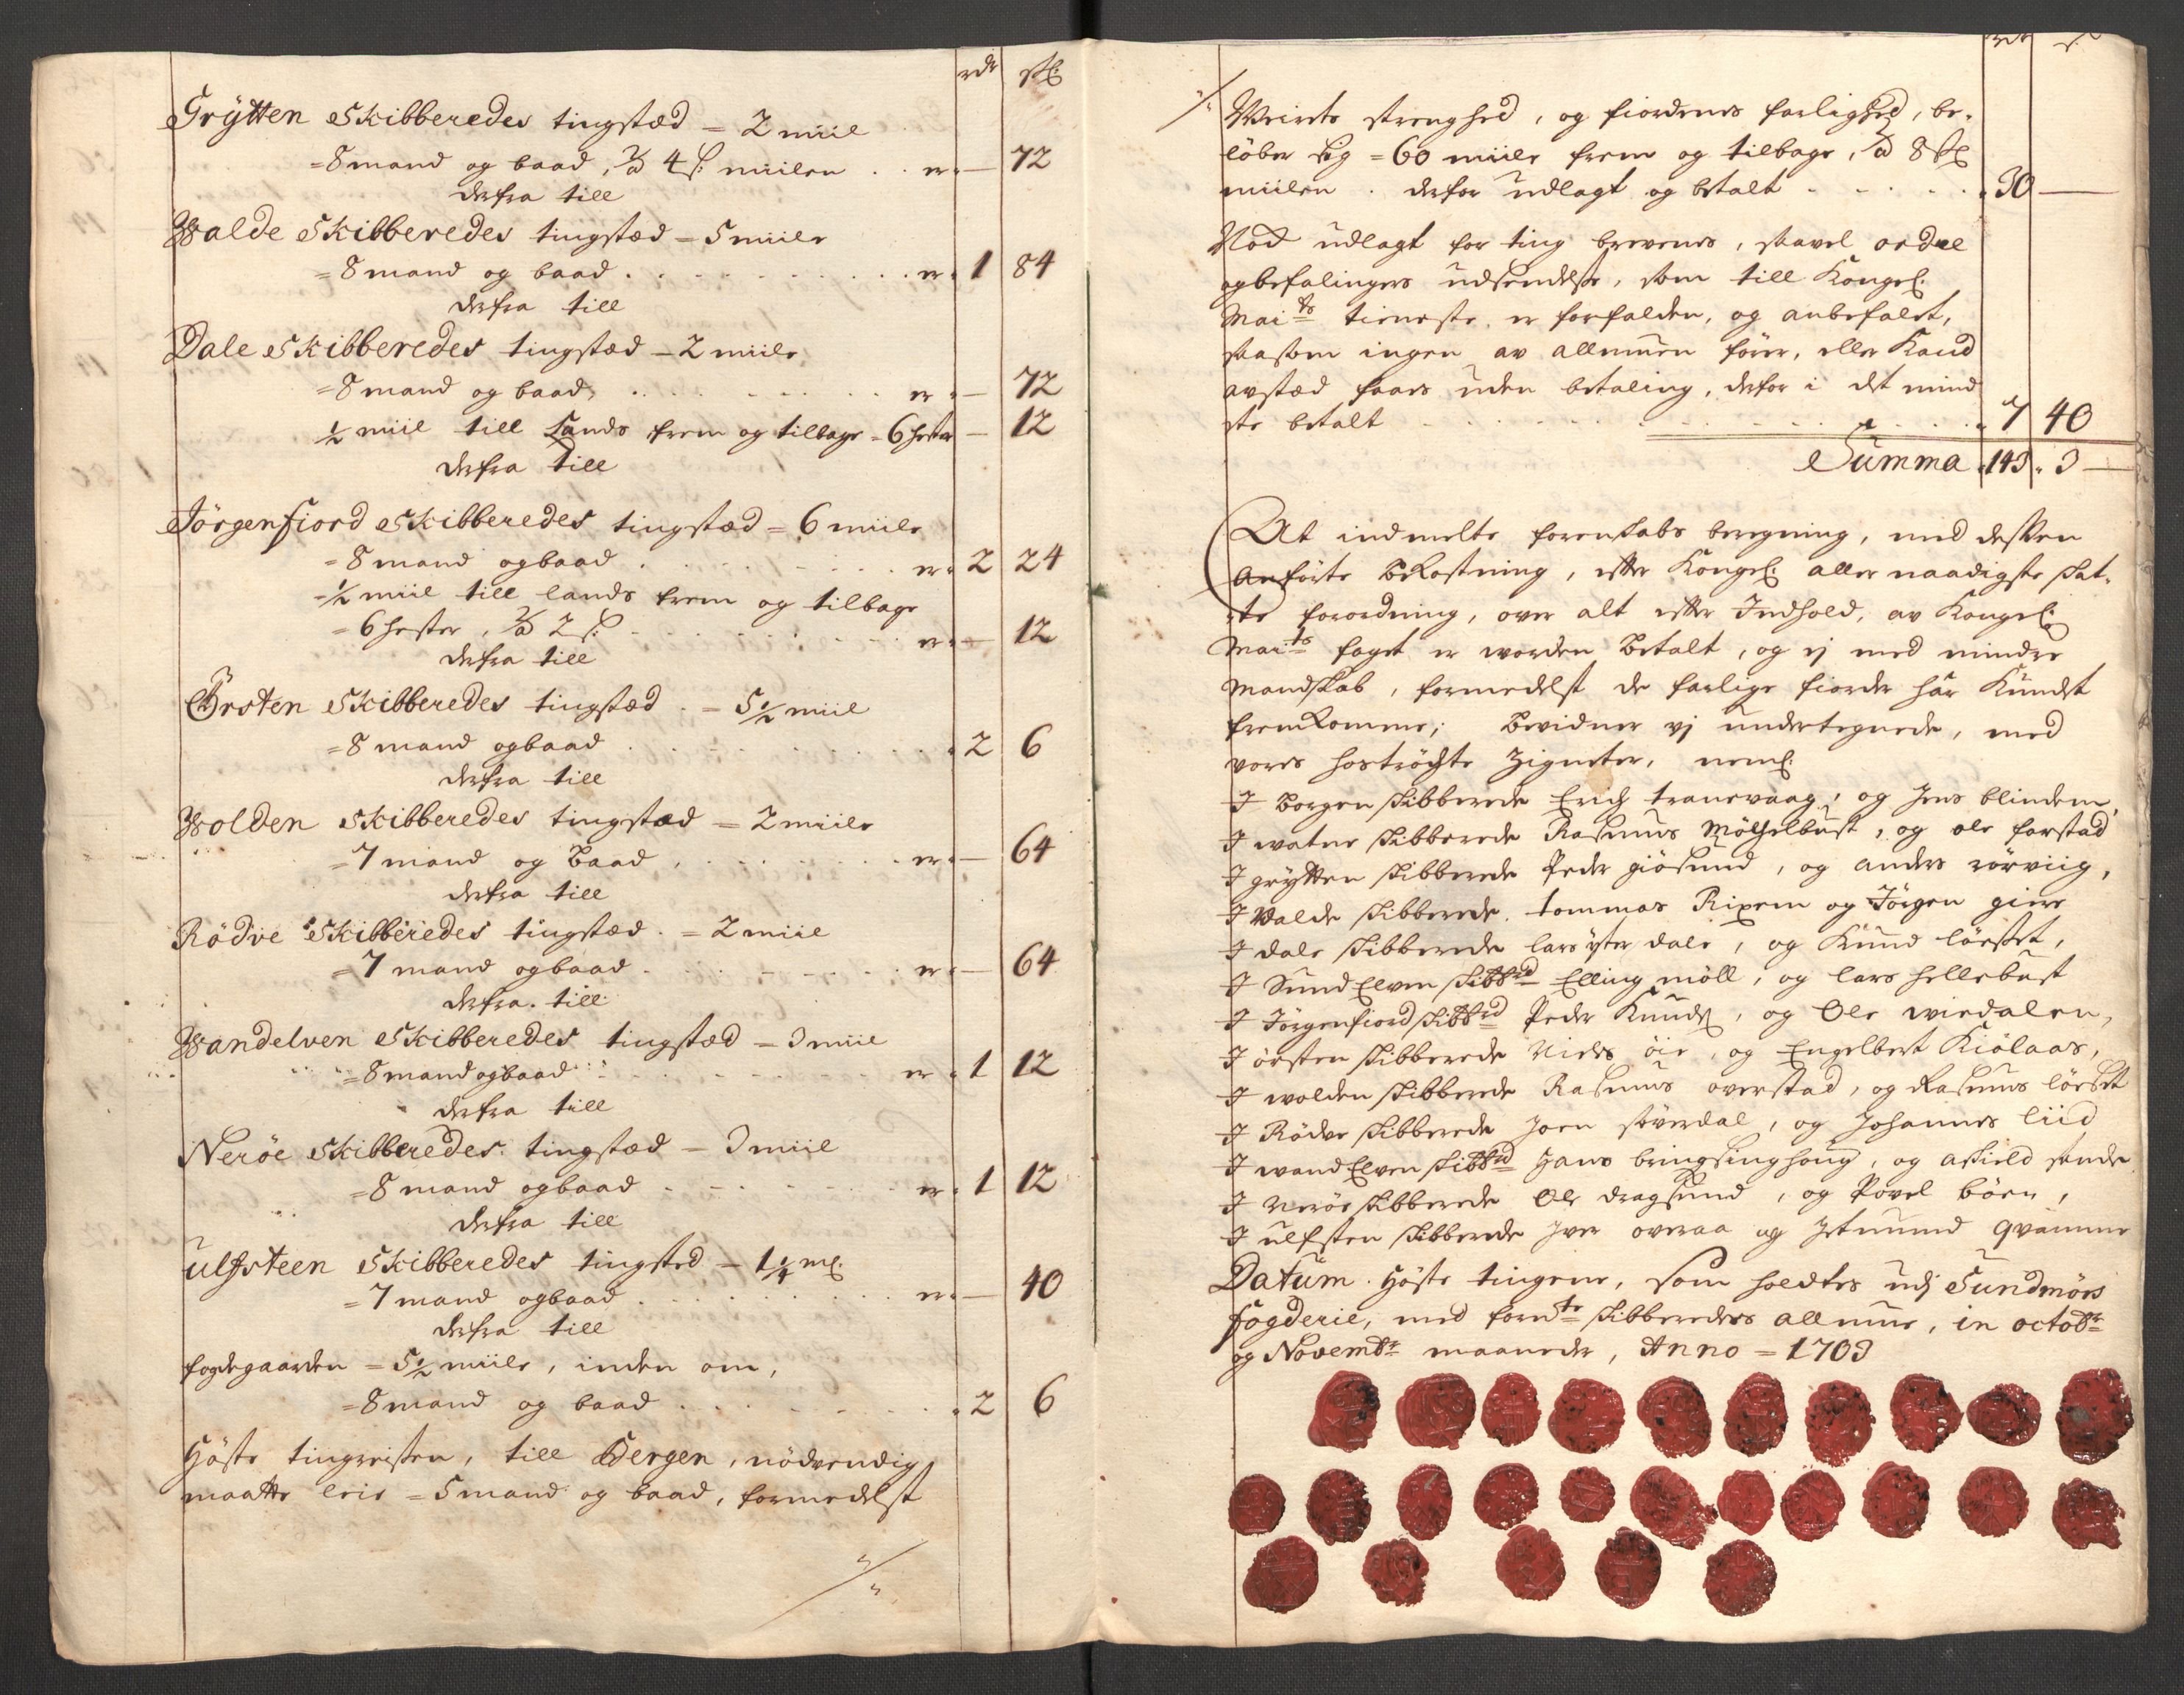 rdr sk
Grÿtten Skibberedes tingstæd = 2 miil
= 8 mand og baad, â 4 s: miilen . . er — 72
derfra till
Walde Skibberedes tingstæd = 5 miile
= 8 mand og baad . . . . er 1 84
derfra till
Dale Skibberedes tingstæd = 2 miile
= 8 mand og baad . . . er — 72
½ miil till Lands frem og tilbage = 6 hester — 12
derfra till
Jörgenfiord Skibberedes tingstæd = 6 miile
= 8 mand og baad . . . er 2 24
= ½ miil till lands frem og tilbage
= 6 hester, â 2 s: . . . er — 12
derfra till
Örsten Skibberedes tingstæd . = 5½ miil
= 8 mand og baad . . . 2 6
derfra till
Wolden Skibberedes tingstæd = 2 miile
= 7 mand og baad . . . er — 64
derfra till
Rödve Skibberedes tingstæd . = 2 miil
= 7 mand og baad . . . er — 64
derfra till
Wandelven Skibberedes tingstæd = 3 miil
= 8 mand og baad . . . er 1 12
derfra till
Neröe Skibberedes tingstæd = 3 miil
= 8 mand og baad . . . er 1 12
derfra till
Ulfsteen Skibberedes tingsted = 1¼ ml:
= 7 mand og baad . . . er — 40
derfra till
fogdegaarden = 5½ miile, inden om,
= 8 mand og baad . . . 2 6
Höste tingreisen, till Bergen, nödvendig
maatte leie = 5 mand og baad, formedelst
rdr s
Weirets strenghed, og fiordenes farlighed, be-
löber sig = 60 miile frem og tilbage, â 8 sk
miilen . derfor udlagt og betalt . . . 30 —
Nock udlagt for ting brevenes, stavel ordre
og befalingers udsendelse, som till Kongel:
Maits tieneste er forfalden, og anbefalet,
saasom ingen av allmuen fører, eller Kand
avsted faaes uden betaling, derfor i det mind
ste betalt . . . 7 40
Summa 143 3
At indmelte forenskabs beregning, med dessen
anförte Bekostning, efter Kongel: aller naadigste skat-
te forordning, over alt efter Indhold, av Kongel:
Maits foget er worden Betalt, og ej med mindre
mandskab, formedelst de farlige fiorder har Kundet
fremkomme; Bevidner vj undertegnede, med
vores hoströgte Zigneter, neml:
I Borgen skibberede Erich tranevaag, og Jens blindem,
I watne skibberede Rasmus Mölgelbust, og ole farstad
I grÿtten skibberede Peder giösund, og anders rörviig,
I Walde skibberede tommas Rixem og Jörgen giere
I dale skibberede lars yter dale, og Knud löeset,
I SundElven skibbrd Elling möll, og lars hellebust
I Jörgenfiord skibbrd Peder Knuds, og Ole wiedalen,
I örsten skibberede Niels öie, og Engelbert Kiölaas,
I wolden skibberede Rasmus overstad, og Rasmus löeset
I Rödve skibberede Joen störerdal, og Johannes liid
I wandElven skibbrd Hans bringsinghoug, og askield sande
I Neröe skibberede Ole dragsund, og Povel böen,
I ulfsten skibberede Iver overaa og Jetmund qvamme
Datum . Höste tingene, som holdtes udj Sundmörs
fogderie, med formte skibberedes allmue, in octobr
og Novembr maaneder, Anno = 1703